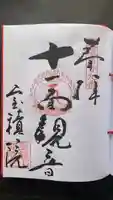 奉拝
十一面観音
宝積院